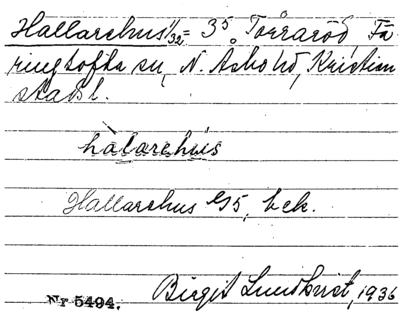 Hallarehus 1/32 = 3⁵ Torraröd, Fä
ringtofta sn, N. Åsbo hd, Kristian
stads l.
hàlarehús
Hallarehus G5, bek.
Nr 5494. Birgit Lundkvist, 1936